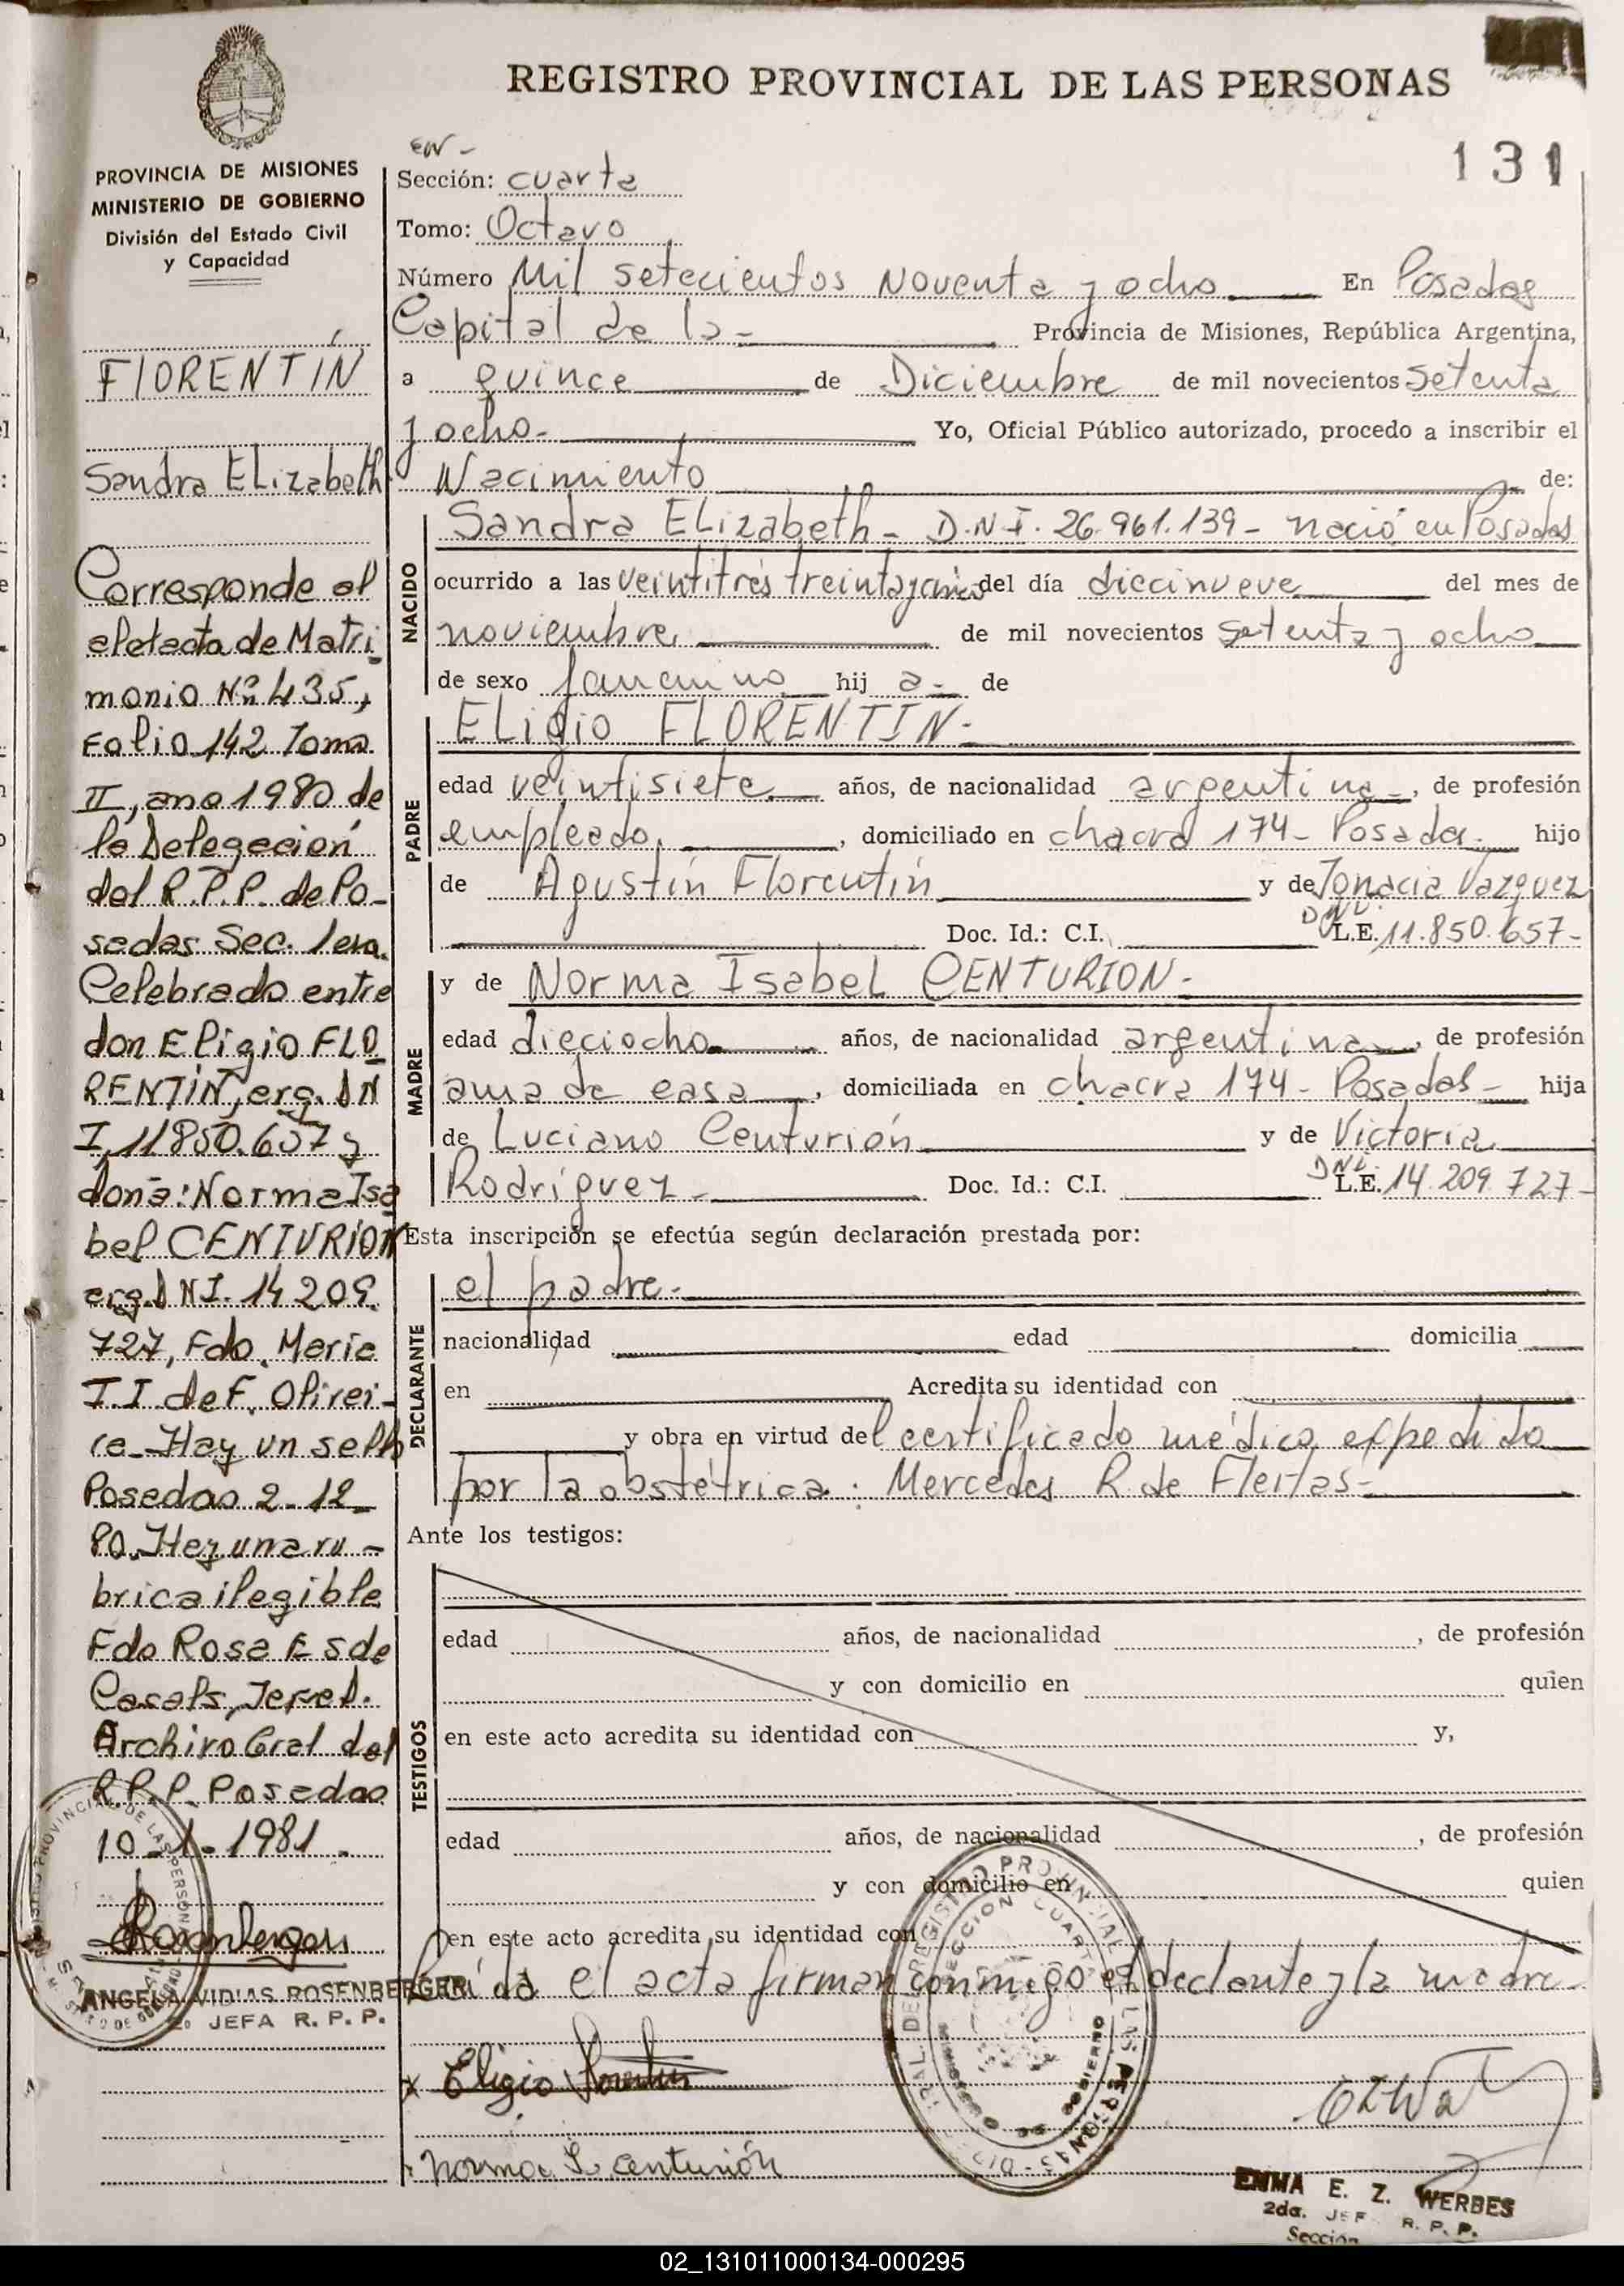 REGISTRO PROVINCIAL DE LAS PERSONAS
131
PROVINCIA DE MISIONES
MINISTERIO DE GOBIERNO
División del Estado Civil
y Capacidad
FLORENTÍN
Sandra ELizabeth
Corresponde al
el acta de Matri
monio Nº 435,
Folio 142 Tomo
II, año 1980 de
la Delegación
del R.P.P. de Po-
sadas Sec. 1era.
Celebrado entre
don Eligio FLO
RENTÍN, arg. DN
I, 11850.657 y
doña: Norma Isa
bel CENTURIÓN
arg. DNI. 14 209.
727, Fdo. María
I.I de F. Olivei-
ra - Hay un sello
Posadas 2-12-
80. Hay una rú-
brica ilegible
Fdo Rosa E S de
Casals, Jefe D.
Archivo Gral del
R.P.P. Posadas
10-1-1981.
ANGELA VIDIAS ROSENBERGER
2º JEFA R. P. P.
EN -
Sección: cuarta
Tomo: Octavo
Número Mil setecientos Noventa y ocho En Posadas
Capital de la - Provincia de Misiones, República Argentina,
a quince de Diciembre de mil novecientos setenta
y ocho - Yo, Oficial Público autorizado, procedo a inscribir el
Nacimiento de:
NACIDO
Sandra ELizabeth - D.N.I. 26.961.139 - nació en Posadas
ocurrido a las veintitrés treinta y cinco del día diecinueve del mes de
noviembre de mil novecientos setenta y ocho
de sexo femenino hij a - de
PADRE
ELigio FLORENTIN -
edad veintisiete años, de nacionalidad argentina, de profesión
empleado, domiciliado en chacra 174 - Posadas hijo
de Agustín Florentín y de Ignacia Vazquez
Doc. Id.: C.I. DNI. L.E. 11.850.657 -
MADRE
y de Norma Isabel CENTURION -
edad dieciocho años, de nacionalidad argentina, de profesión
ama de casa, domiciliada en chacra 174 - Posadas - hija
de Luciano Centurión y de Victoria
Rodríguez - Doc. Id.: C.I. DNI. L.E. 14.209.727 -
Esta inscripción se efectúa según declaración prestada por:
DECLARANTE
el padre -
nacionalidad edad domicilia
en Acredita su identidad con
y obra en virtud del certificado médico expedido
por la obstétrica: Mercedes R de Fleitas -
Ante los testigos:
TESTIGOS
edad años, de nacionalidad , de profesión
y con domicilio en quien
en este acto acredita su identidad con y,
edad años, de nacionalidad , de profesión
y con domicilio en quien
en este acto acredita su identidad con
Leída el acta firman conmigo el declante y la madre -
x Eligio Florentin
Norma I. Centurión
EMMA E. Z. WERBES
2da. JEF R. P. P.
Sección
02_131011000134-000295